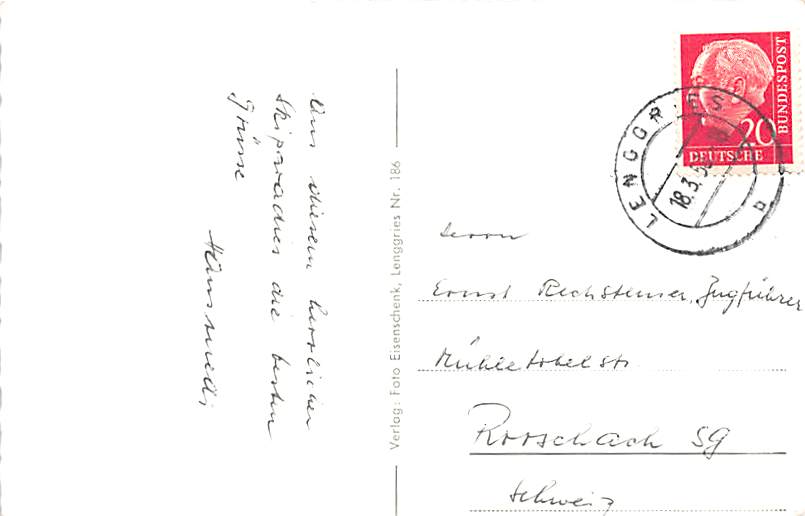 Aus diesem herrlichen
Skiparadies die besten
Grüsse
Verlag: Foto Eisenschenk, Lenggries Nr. 186
DEUTSCHE
BUNDESPOST
20
LENGGRIES
18.3.5
b
Herrn
Ernst Rechsteiner, Zugführer
Mühletobelstr
Rorschach SG
Schweiz